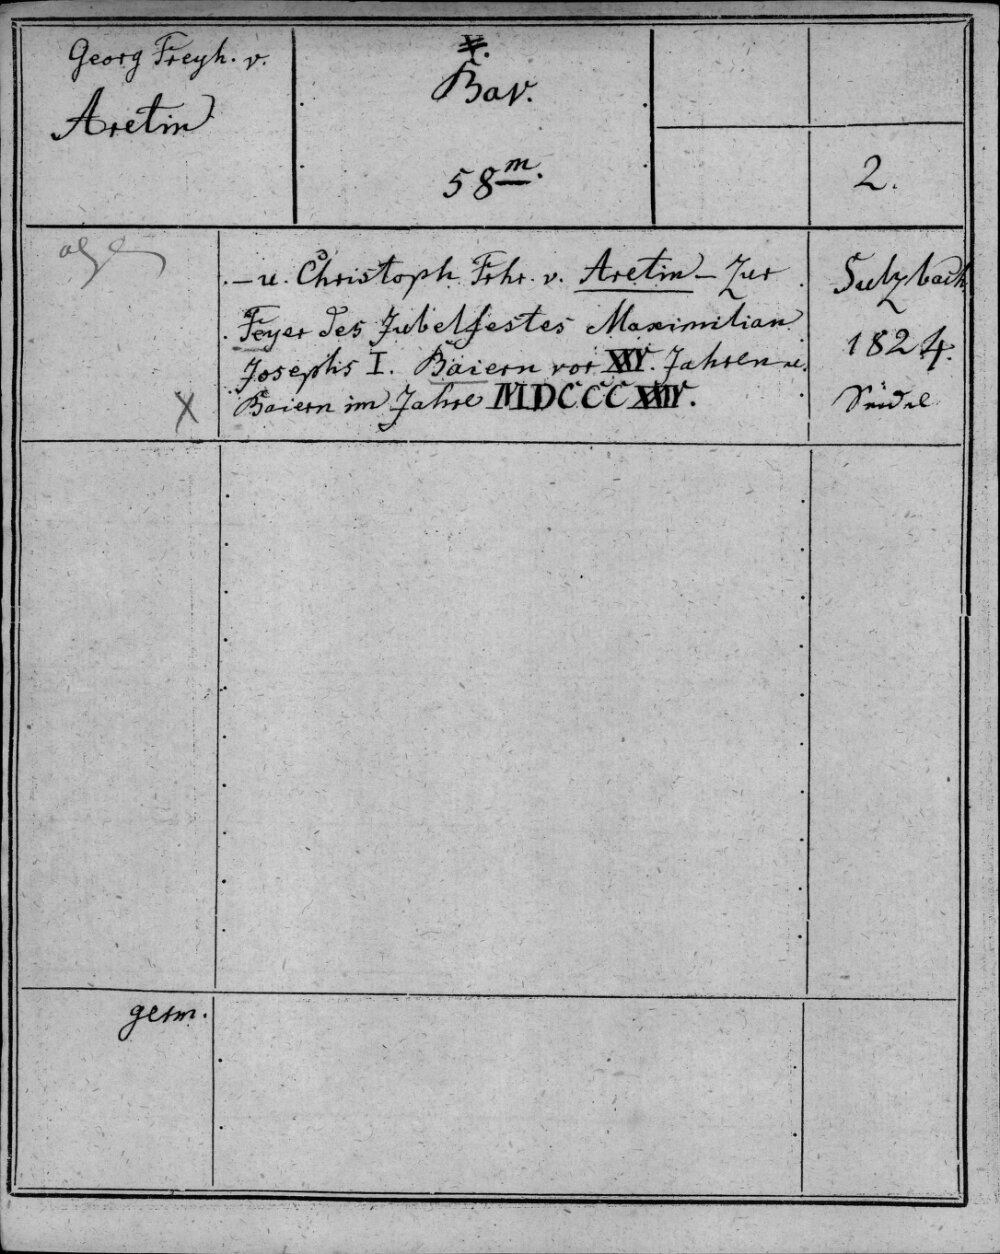 Georg Freyh. v.
Aretin
Bav.
58m.
2.
– u. Christoph Frhr. v. Aretin – Zur
Feyer des Jubelfestes Maximilian
Josephs I. Baiern vor XXV. Jahren u.
Baiern im Jahre MDCCCXXIV.
Sulzbach
1824.
Seidel
X
germ.